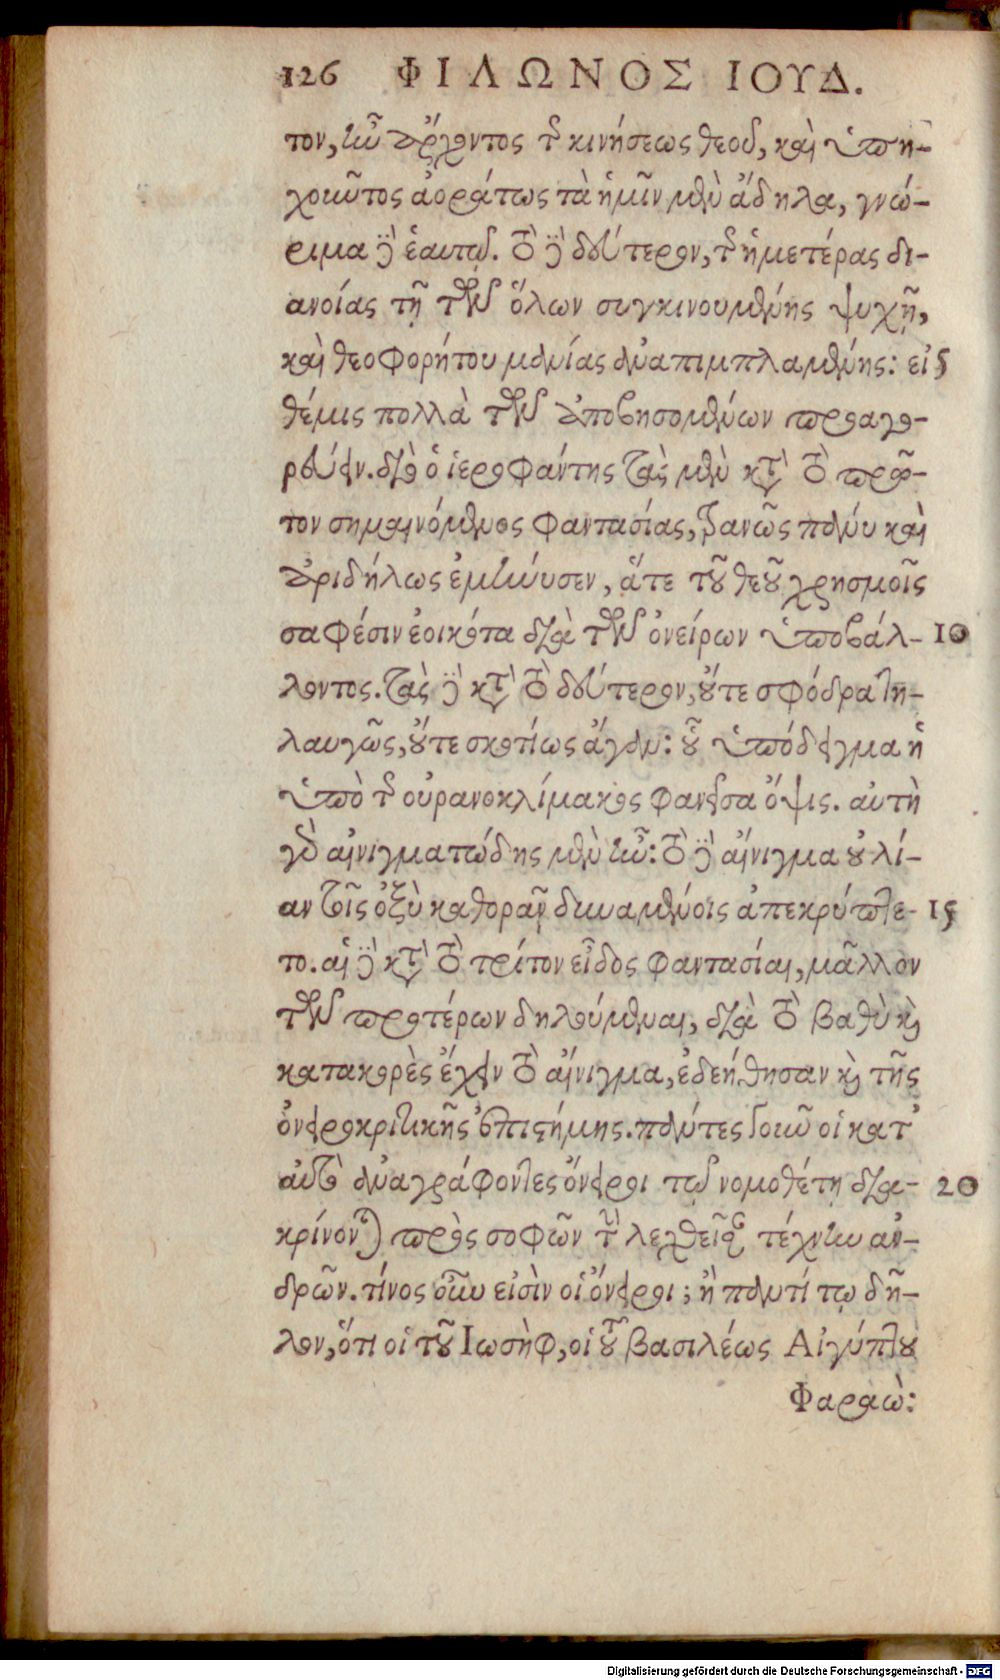 126 ΦΙΛΩΝΟΣ ΙΟΥΔ.
τον, ἦν ἄρχοντος τῆς κινήσεως θεοῦ, καὶ ὑπη-
χοῦντος ἀοράτως τὰ ἡμῖν μὲν ἄδηλα, γνώ-
ριμα δὲ ἑαυτῷ. τὸ δὲ δεύτερον, τῆς ἡμετέρας δι-
ανοίας τῇ τῶν ὅλων συγκινουμένης ψυχῇ,
καὶ θεοφορήτου μανίας ἀναπιμπλαμένης: εἰ 5
θέμις πολλὰ τῶν ἀποβησομένων προαγο-
ρεύειν. διὸ ὁ ἱεροφάντης τὰς μὲν κατὰ τὸ πρῶ-
τον σημαινόμενος φαντασίας, τρανῶς πάνυ καὶ
ἀριδήλως ἐμήνυσεν, ἅτε τοῦ θεοῦ χρησμοῖς
σαφέσιν ἐοικότα διὰ τῶν ὀνείρων ὑποβάλ- 10
λοντος. τὰς δὲ κατὰ τὸ δεύτερον, οὔτε σφόδρα τη-
λαυγῶς, οὔτε σκοτίως ἄγαν: οὗ ὑπόδειγμα ἡ
ὑπὸ τῆς οὐρανοκλίμακος φανεῖσα ὄψις. αὐτὴ
γὰρ αἰνιγματώδης μὲν ἦν: τὸ δὲ αἴνιγμα οὐ λί-
αν τοῖς ὀξὺ καθορᾷν δυναμένοις ἀπεκρύπτε- 15
το. αἱ δὲ κατὰ τὸ τρίτον εἶδος φαντασίαι, μᾶλλον
τῶν προτέρων δηλούμεναι, διὰ τὸ βαθὺ καὶ
κατακορὲς ἔχειν τὸ αἴνιγμα, ἐδεήθησαν καὶ τῆς
ὀνειροκριτικῆς ἐπιστήμης. πάντες γοῦν οἱ κατ'
αὐτὸ ἀναγράφοντες ὄνειροι τῷ νομοθέτῃ δια- 20
κρίνονται πρὸς σοφῶν τὴν λεχθεῖσαν τέχνην ἀν-
δρῶν. τίνος οὖν εἰσὶν οἱ ὄνειροι; ἢ παντί τῳ δῆ-
λον, ὅτι οἱ τοῦ Ἰωσὴφ, οἱ τοῦ βασιλέως Αἰγύπτου
Φαραώ:
Digitalisierung gefördert durch die Deutsche Forschungsgemeinschaft - DFG